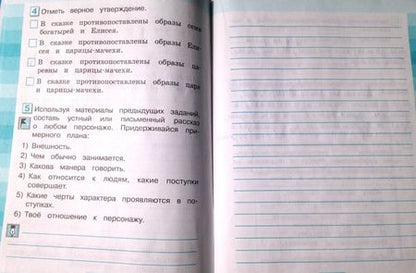 4 Отметь верное утверждение.
В сказке противопоставлены образы семи
богатырей и Елисея.
В сказке противопоставлены образы Ели-
сея и царицы-мачехи.
В сказке противопоставлены образы ца-
ревны и царицы-мачехи.
В сказке противопоставлены образы царя
и царицы-мачехи.
5 Используя материалы предыдущих заданий,
составь устный или письменный рассказ
о любом персонаже. Придерживайся при-
мерного плана:
1) Внешность.
2) Чем обычно занимается.
3) Какова манера говорить.
4) Как относится к людям, какие поступки
совершает.
5) Какие черты характера проявляются в по-
ступках.
6) Твоё отношение к персонажу.